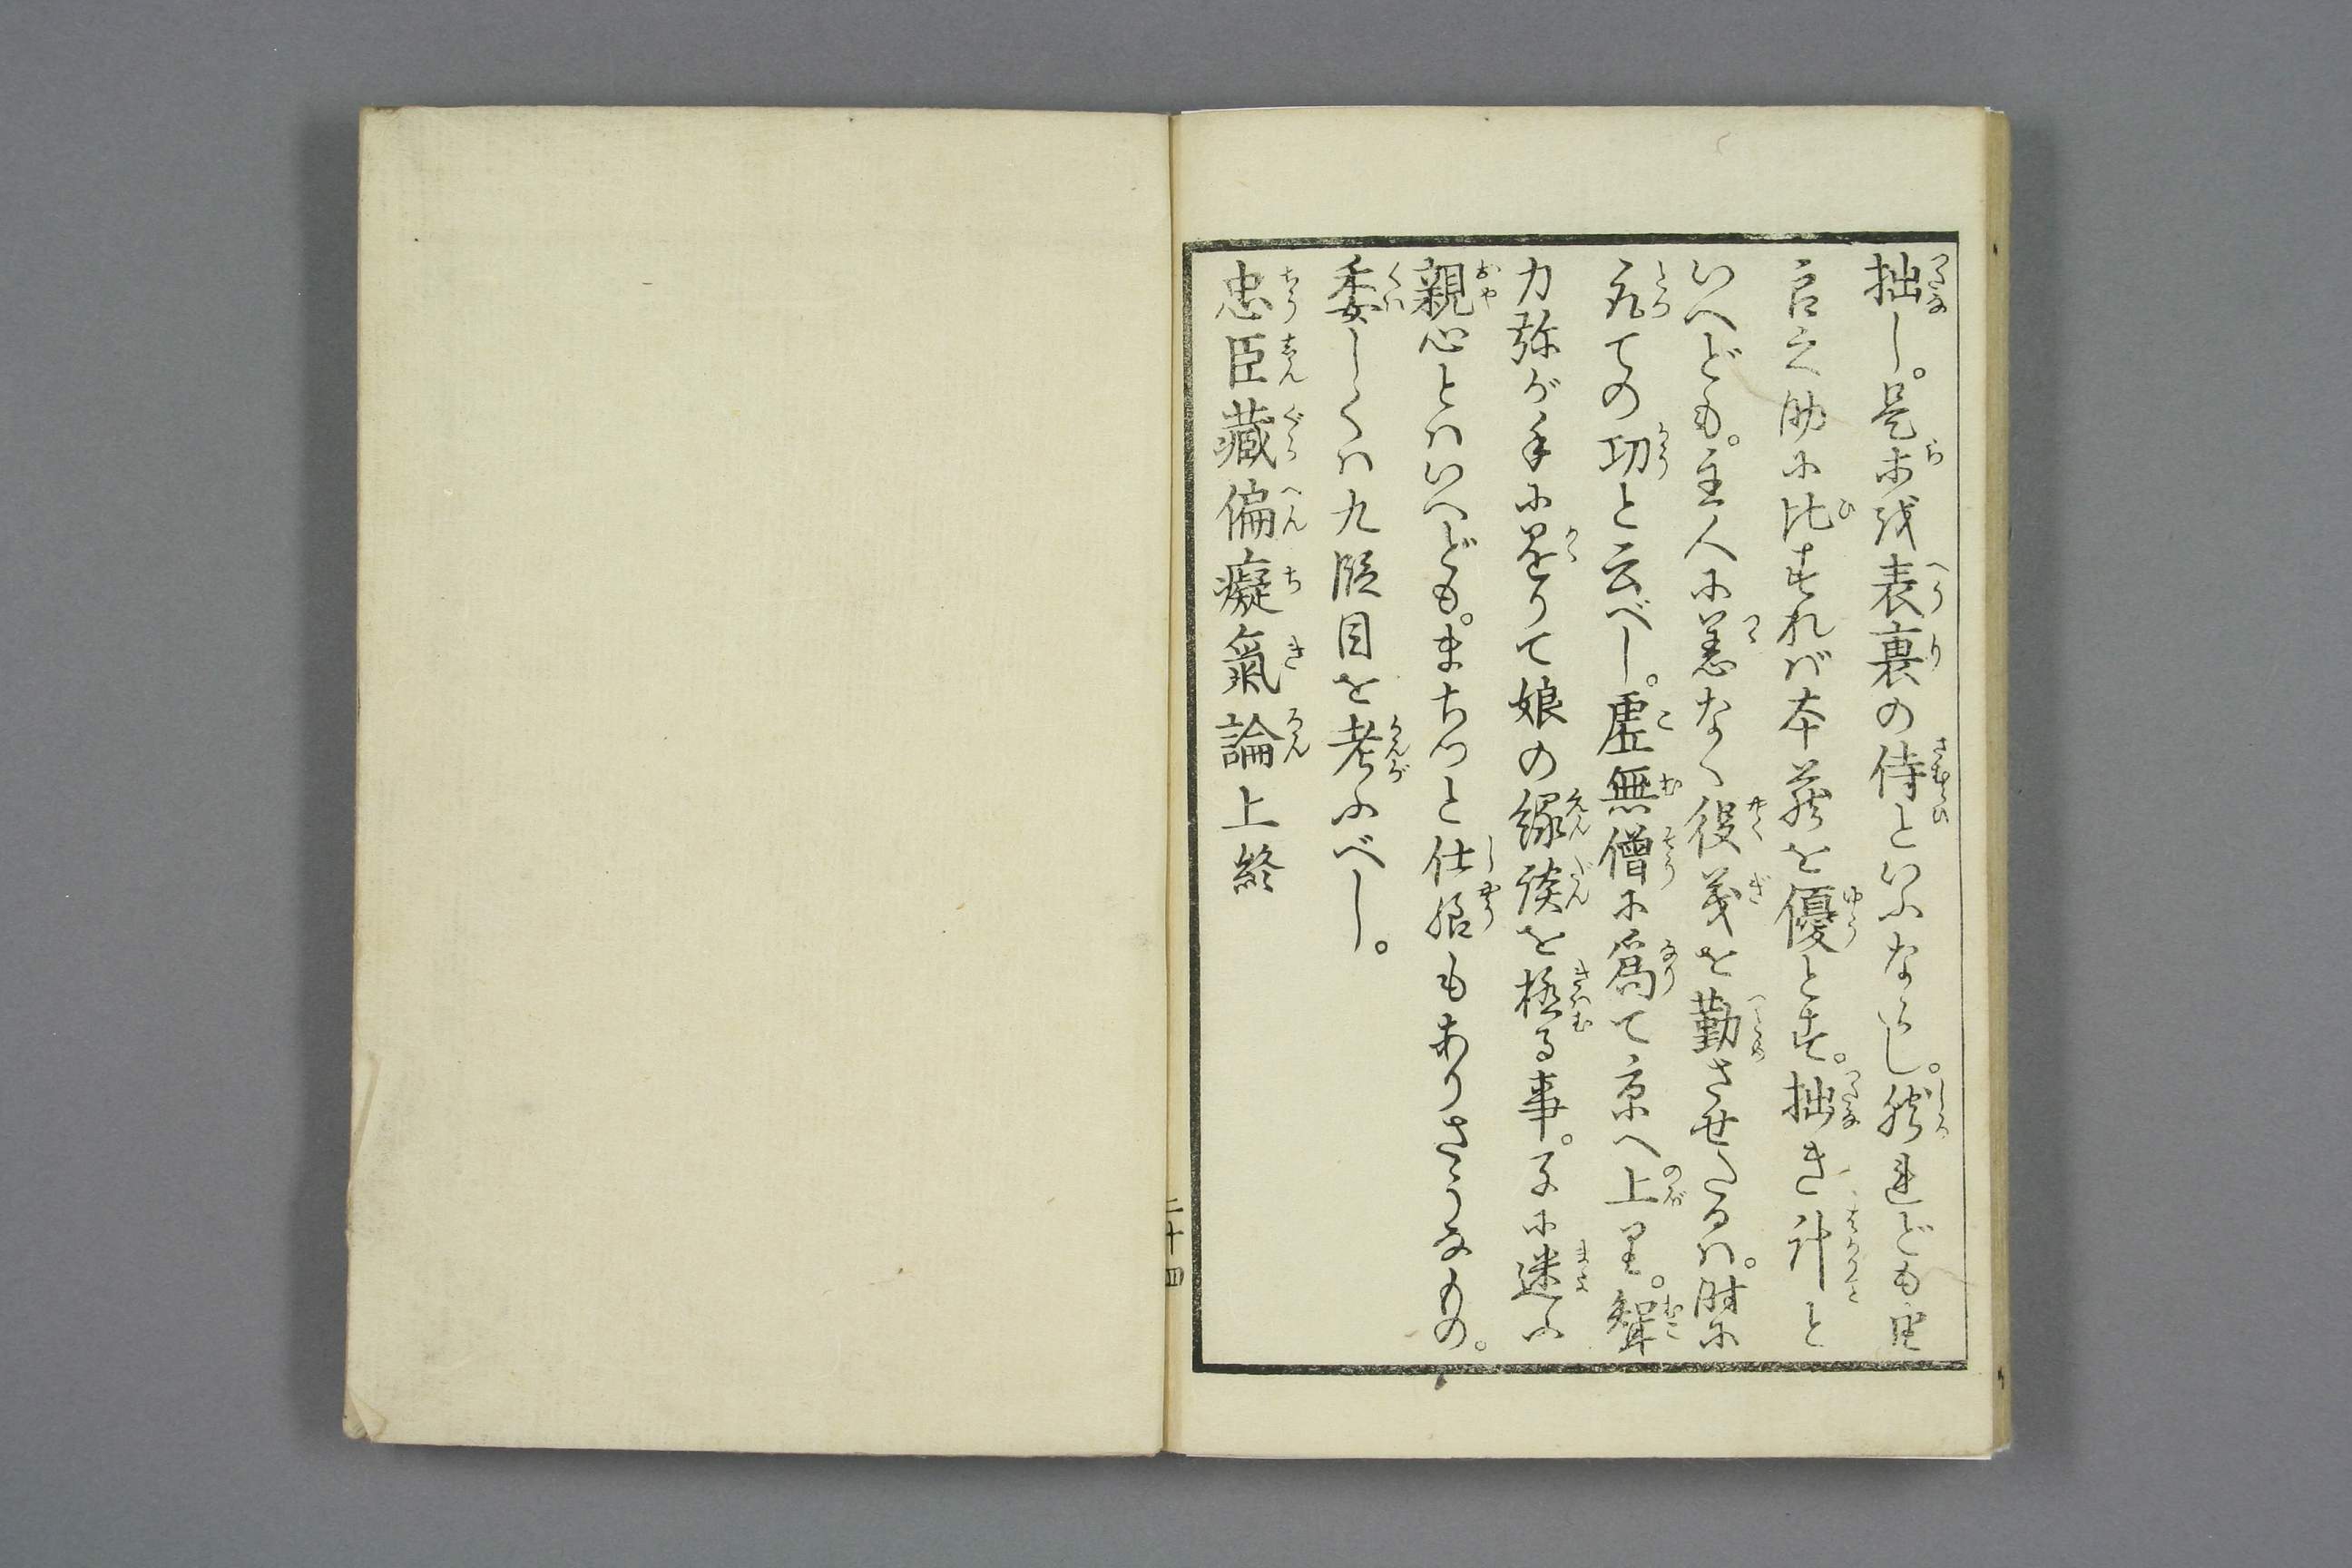 拙し。是等を表裏の侍といふならし。然れども由
良之助に比すれば本蔵を優とす。拙き計と
いへども。主人に恙なく役義を勤させたるは。時に
取ての功と云べし。虚無僧に為て京へ上り。聟
力弥が手にかゝりて娘の縁談を極る事。子に迷ふ
親心とはいへども。まちつと仕様もありさうなもの。
委しくは九段目を考ふべし。
忠臣藏偏癡氣論上終
二十四